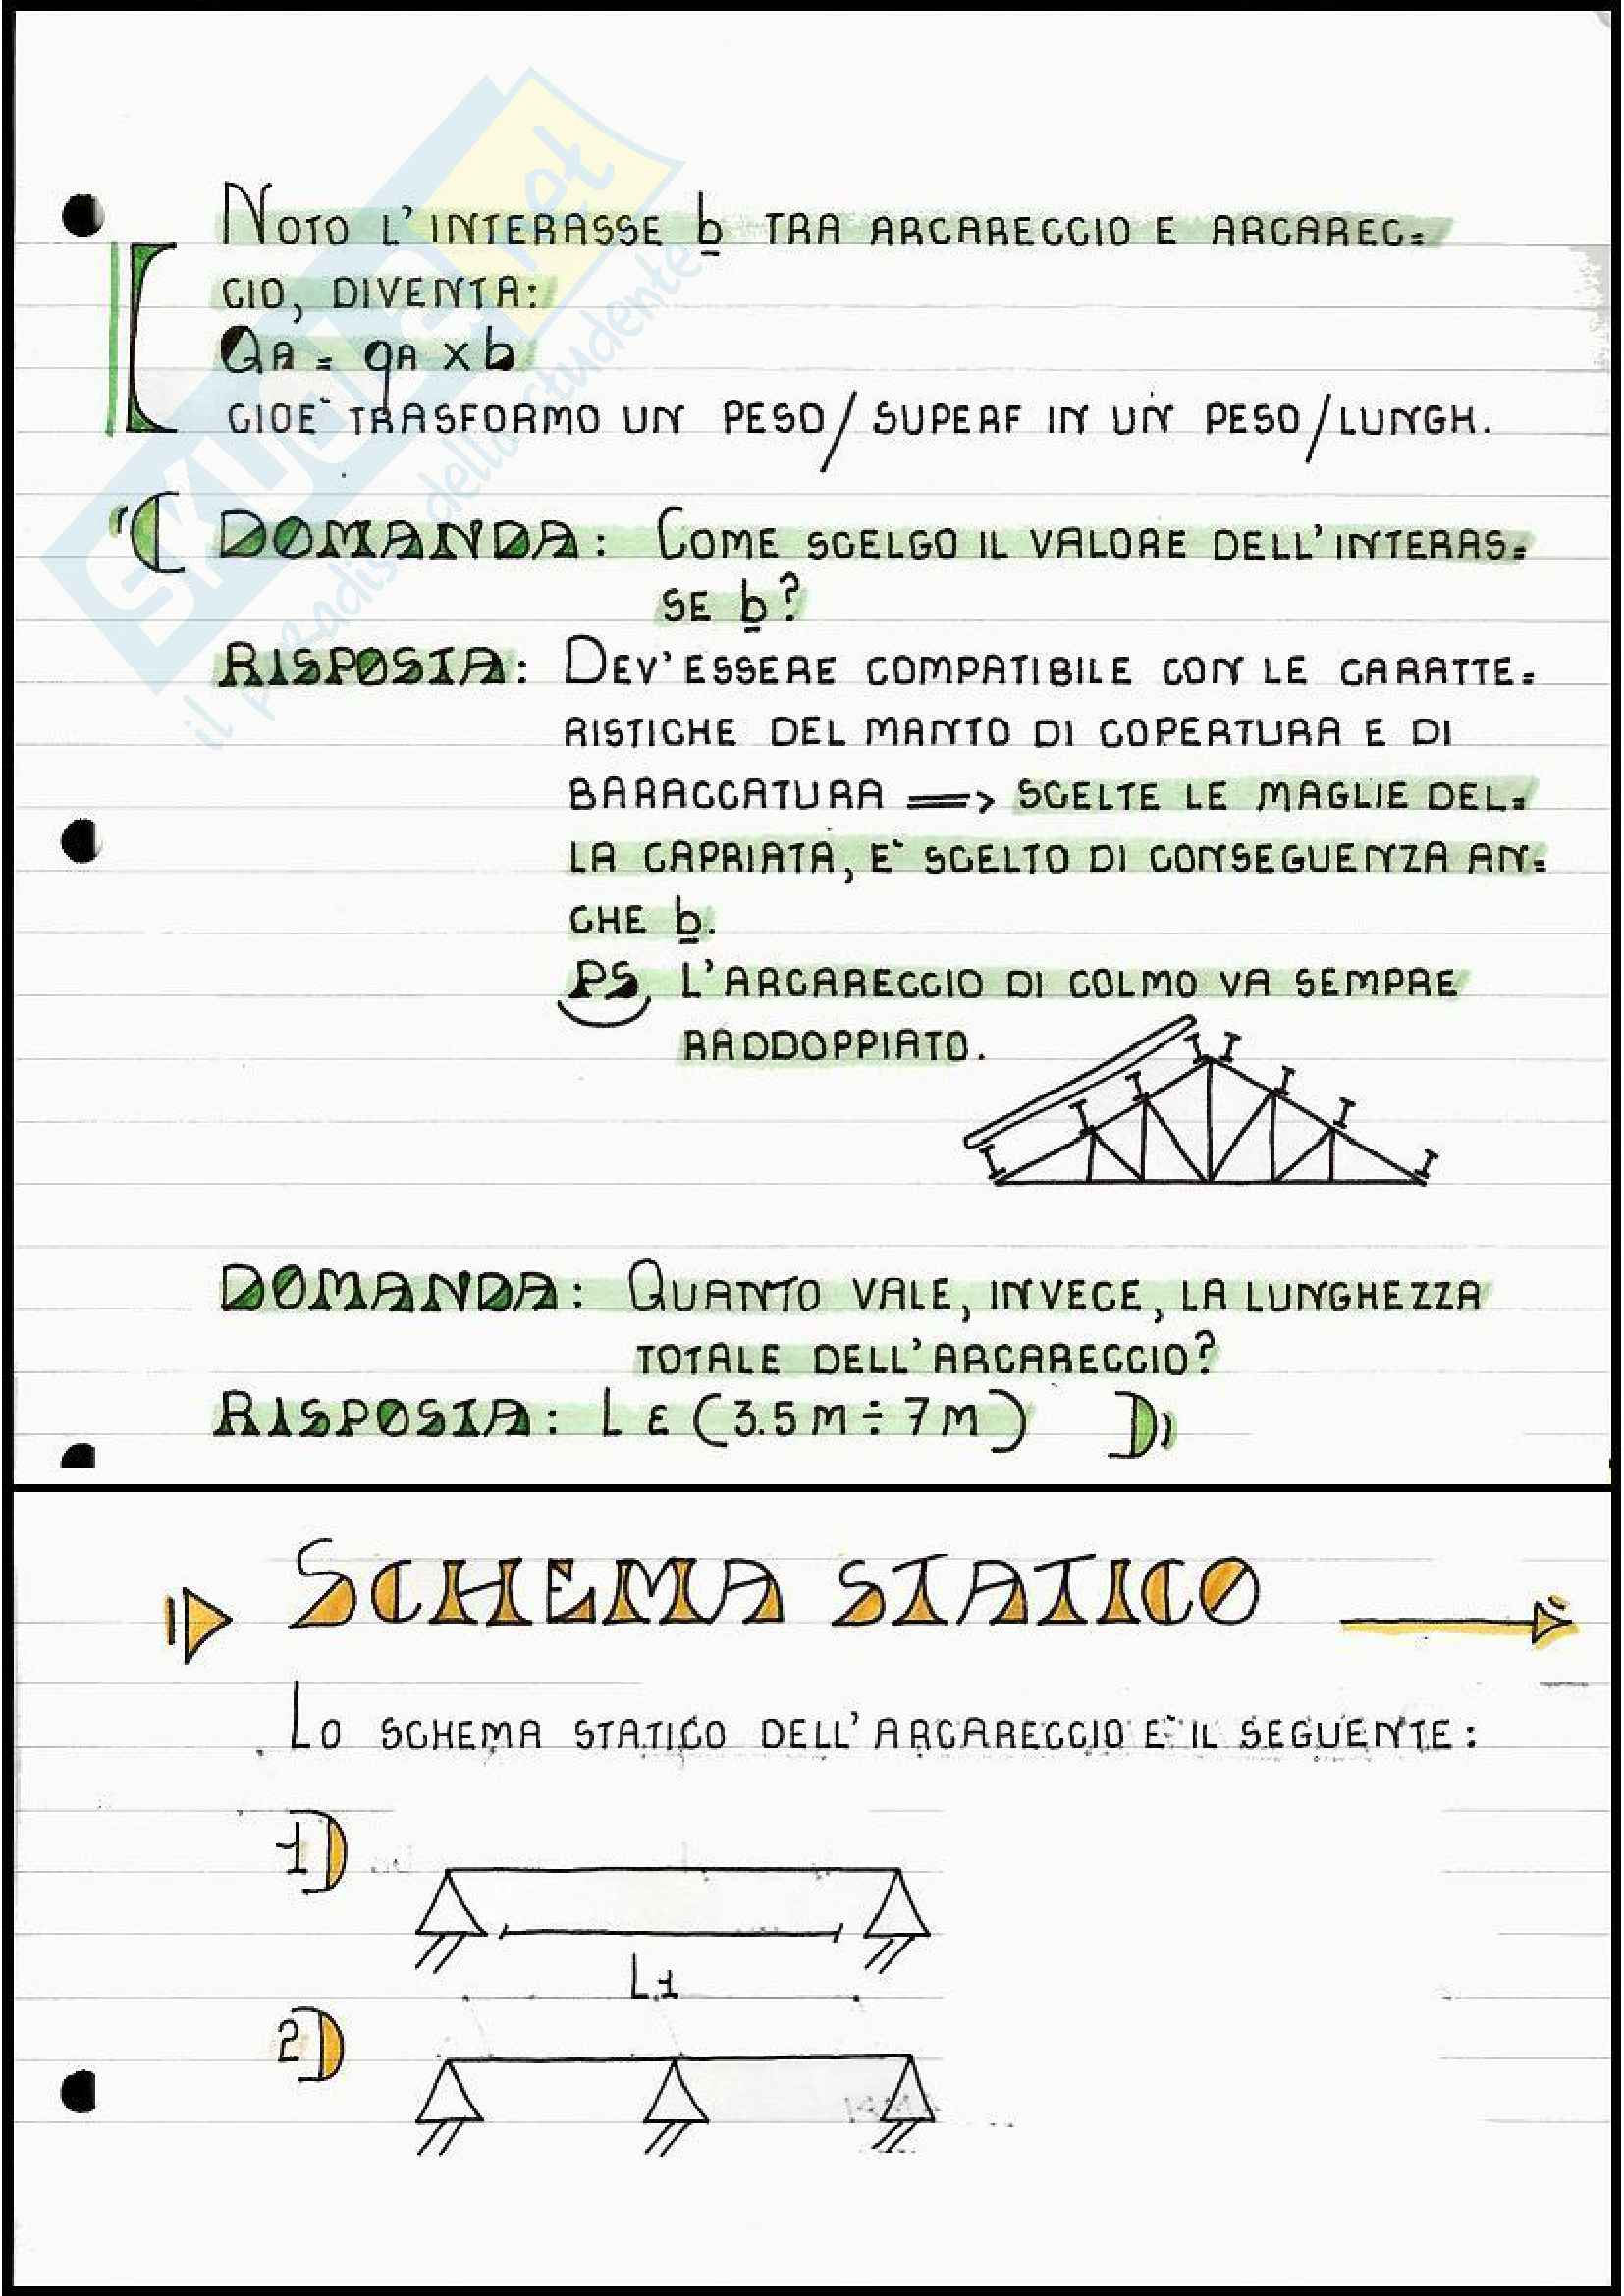 NOTO L'INTERASSE b TRA ARCARECCIO E ARCAREC=
CIO, DIVENTA:
QA = qA x b
CIOE` TRASFORMO UN PESO/SUPERF IN UN PESO/LUNGH.
DOMANDA: COME SCELGO IL VALORE DELL'INTERAS=
SE b?
RISPOSTA: DEV'ESSERE COMPATIBILE CON LE CARATTE=
RISTICHE DEL MANTO DI COPERTURA E DI
BARACCATURA => SCELTE LE MAGLIE DEL=
LA CAPRIATA, E` SCELTO DI CONSEGUENZA AN=
CHE b.
PS L'ARCARECCIO DI COLMO VA SEMPRE
RADDOPPIATO.
DOMANDA: QUANTO VALE, INVECE, LA LUNGHEZZA
TOTALE DELL'ARCARECCIO?
RISPOSTA: L ε (3.5 M ÷ 7 M)
SKUOLA.net
il paradiso dello studente
SCHEMA STATICO
LO SCHEMA STATICO DELL'ARCARECCIO E` IL SEGUENTE:
1)
L1
2)